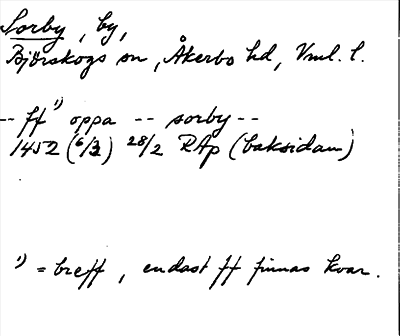 Sorby, by,
Björskogs sn, Åkerbo hd, Vml. l.
-- ff ¹) oppa -- sorby --
1452 (6/3) 28/2 RAp (baksidan)
¹) = breff, endast ff finnas kvar.